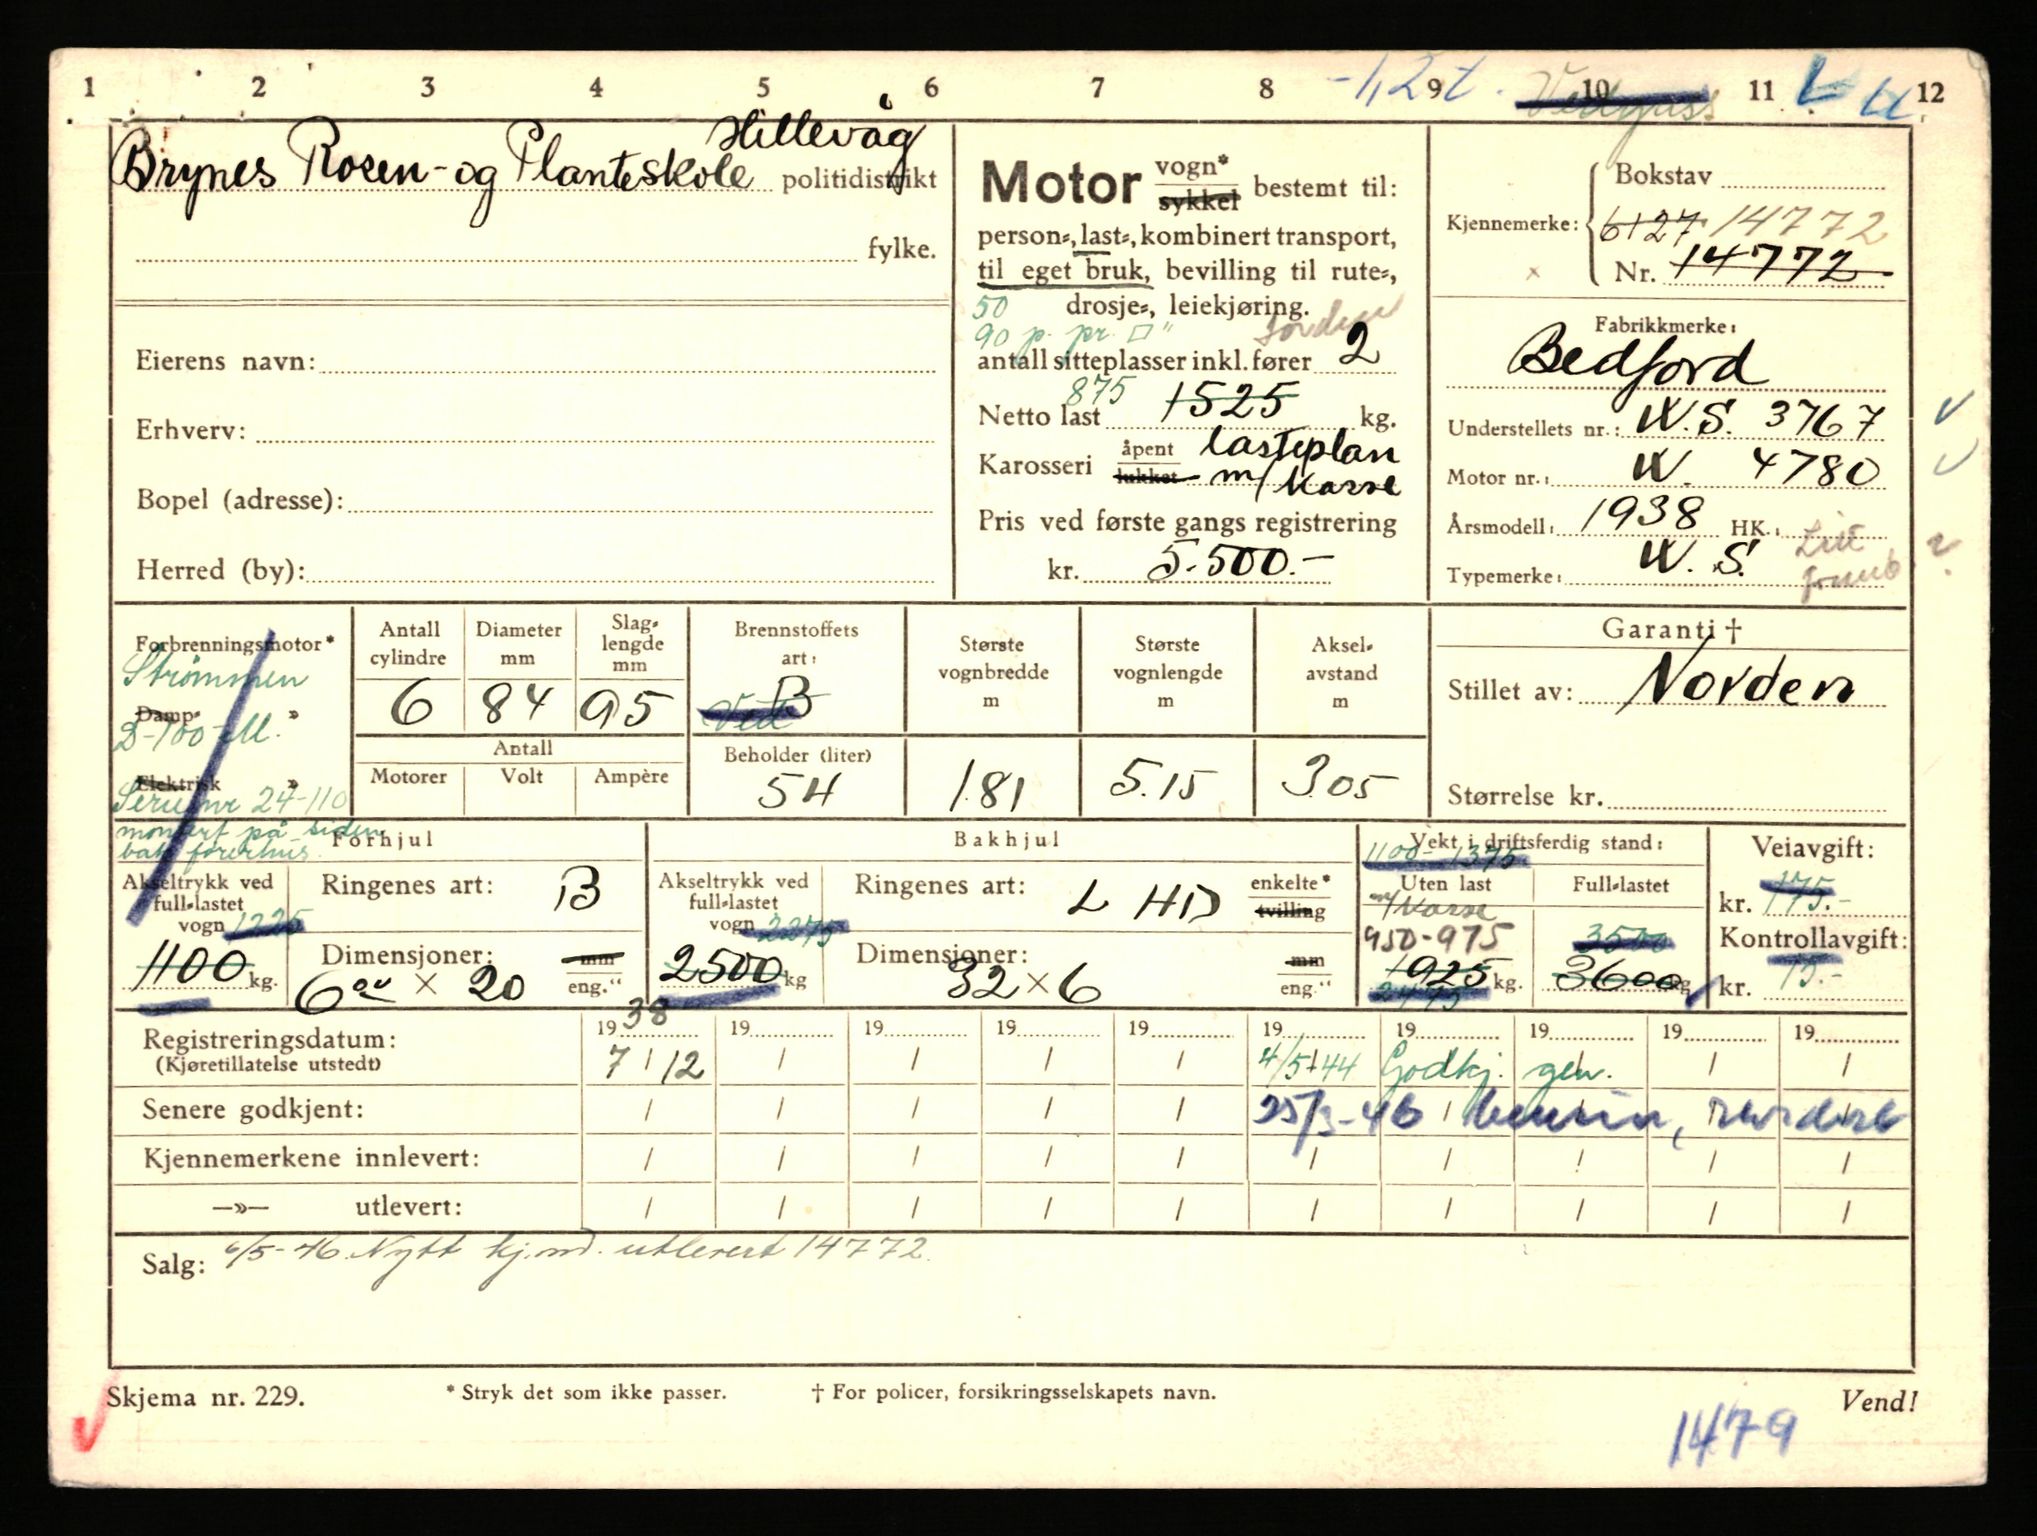 1 2 3 4 5 6 7 8 -1,2 t. 9 Vedgass 10 11 L U. 12
Hillevåg
Brynes Rosen- og Planteskole politidistrikt
fylke.
Eierens navn:
Erhverv:
Bopel (adresse):
Herred (by):
Motor vogn* sykkel bestemt til:
person-, last-, kombinert transport,
til eget bruk, bevilling til rute-,
50 drosje-, leiekjøring.
90 p. pr. □"
antall sitteplasser inkl. fører 2
875
Netto last 1525 kg.
Karosseri åpent lukket lasteplan
m/ Karse
Pris ved første gangs registrering
kr. 5.500.-
Bokstav
Kjennemerke: 6127 14772
Nr. 14772
Fabrikkmerke:
Bedford
Understellets nr.: W.S. 3767
Motor nr.: W. 4780
Årsmodell: 1938 HK.:
Typemerke: W. S.
Forbrenningsmotor*
Strømmen
Damp- »
D-100-M.
Elektrisk »
Serienr 24-110
montert på siden
bak førerhus.
Antall cylindre Diameter mm Slaglengde mm
6 84 95
Antall
Motorer Volt Ampère
Brennstoffets art:
Ved B
Beholder (liter)
54
Største vognbredde m
1.81
Største vognlengde m
5.15
Aksel-avstand m
3.05
Garanti †
Stillet av: Norden
Størrelse kr.
Forhjul
Akseltrykk ved full-lastet vogn 1225
1100 kg.
Ringenes art: B
Dimensjoner: mm
6⁰⁰ × 20 eng."
Bakhjul
Akseltrykk ved full-lastet vogn 2275
2500 kg
Ringenes art: L HD enkelte* tvilling
Dimensjoner: mm
32 × 6 eng."
Vekt i driftsferdig stand:
1100-1375
Uten last Full-lastet
m/ Karse
950-975 3500
1925 kg. 3600 kg
2475
Veiavgift:
kr. 175.-
Kontrollavgift:
kr. 15.-
Registreringsdatum: 1938 19 19 19 19 19 19 19 19 19
(Kjøretillatelse utstedt) 7/12 / / / / 4/5-44 Godkj. gen. / /
Senere godkjent: / / / / / 25/3-46 bensin,
Kjennemerkene innlevert: / / / / / / / / / /
—»— utlevert: / / / / / / / / / /
Salg: 6/5-46. Nytt kj.m. utlevert 14772.
Skjema nr. 229. * Stryk det som ikke passer. † For policer, forsikringsselskapets navn. Vend!
1479